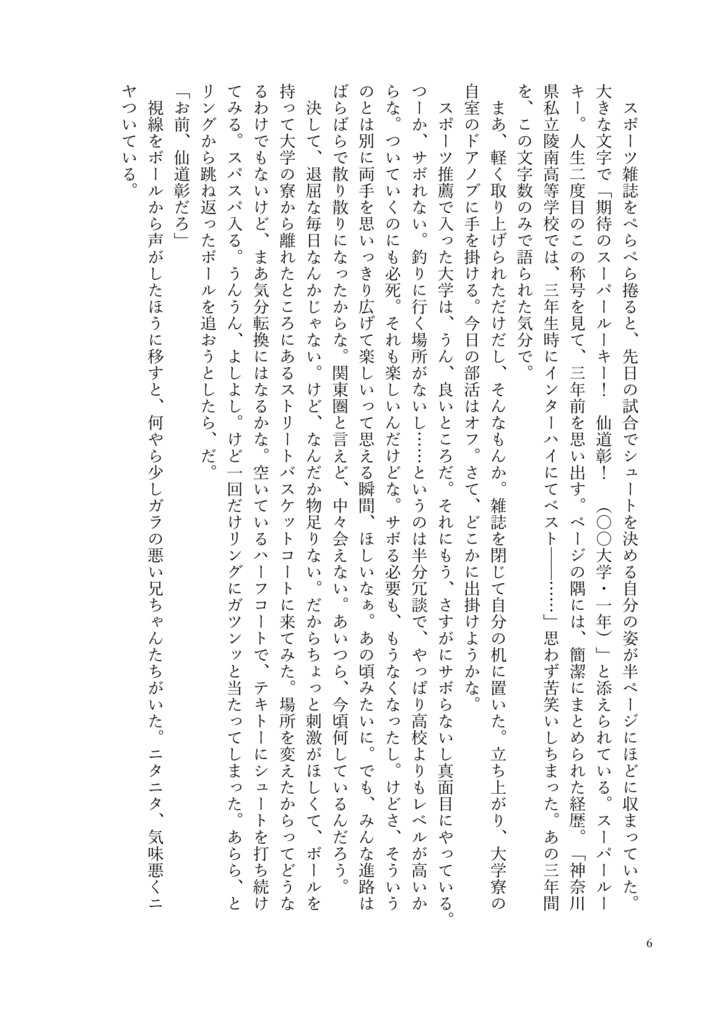 スポーツ雑誌をぺらぺら捲ると、先日の試合でシュートを決める自分の姿が半ページにほどに収まっていた。
大きな文字で「期待のスーパールーキー！　仙道彰！　（〇〇大学・一年）」と添えられている。スーパールー
キー。人生二度目のこの称号を見て、三年前を思い出す。ページの隅には、簡潔にまとめられた経歴。「神奈川
県私立陵南高等学校では、三年生時にインターハイにてベスト――……」思わず苦笑いしちまった。あの三年間
を、この文字数のみで語られた気分で。
まあ、軽く取り上げられただけだし、そんなもんか。雑誌を閉じて自分の机に置いた。立ち上がり、大学寮の
自室のドアノブに手を掛ける。今日の部活はオフ。さて、どこかに出掛けようかな。
スポーツ推薦で入った大学は、うん、良いところだ。それにもう、さすがにサボらないし真面目にやっている。
つーか、サボれない。釣りに行く場所がないし……というのは半分冗談で、やっぱり高校よりもレベルが高いか
らな。ついていくのにも必死。それも楽しいんだけどな。サボる必要も、もうなくなったし。けどさ、そういう
のとは別に両手を思いっきり広げて楽しいって思える瞬間、ほしいなぁ。あの頃みたいに。でも、みんな進路は
ばらばらで散り散りになったからな。関東圏と言えど、中々会えない。あいつら、今頃何しているんだろう。
決して、退屈な毎日なんかじゃない。けど、なんだか物足りない。だからちょっと刺激がほしくて、ボールを
持って大学の寮から離れたところにあるストリートバスケットコートに来てみた。場所を変えたからってどうな
るわけでもないけど、まあ気分転換にはなるかな。空いているハーフコートで、テキトーにシュートを打ち続け
てみる。スパスパ入る。うんうん、よしよし。けど一回だけリングにガツンッと当たってしまった。あらら、と
リングから跳ね返ったボールを追おうとしたら、だ。
「お前、仙道彰だろ」
視線をボールから声がしたほうに移すと、何やら少しガラの悪い兄ちゃんたちがいた。ニタニタ、気味悪くニ
ヤついている。
6